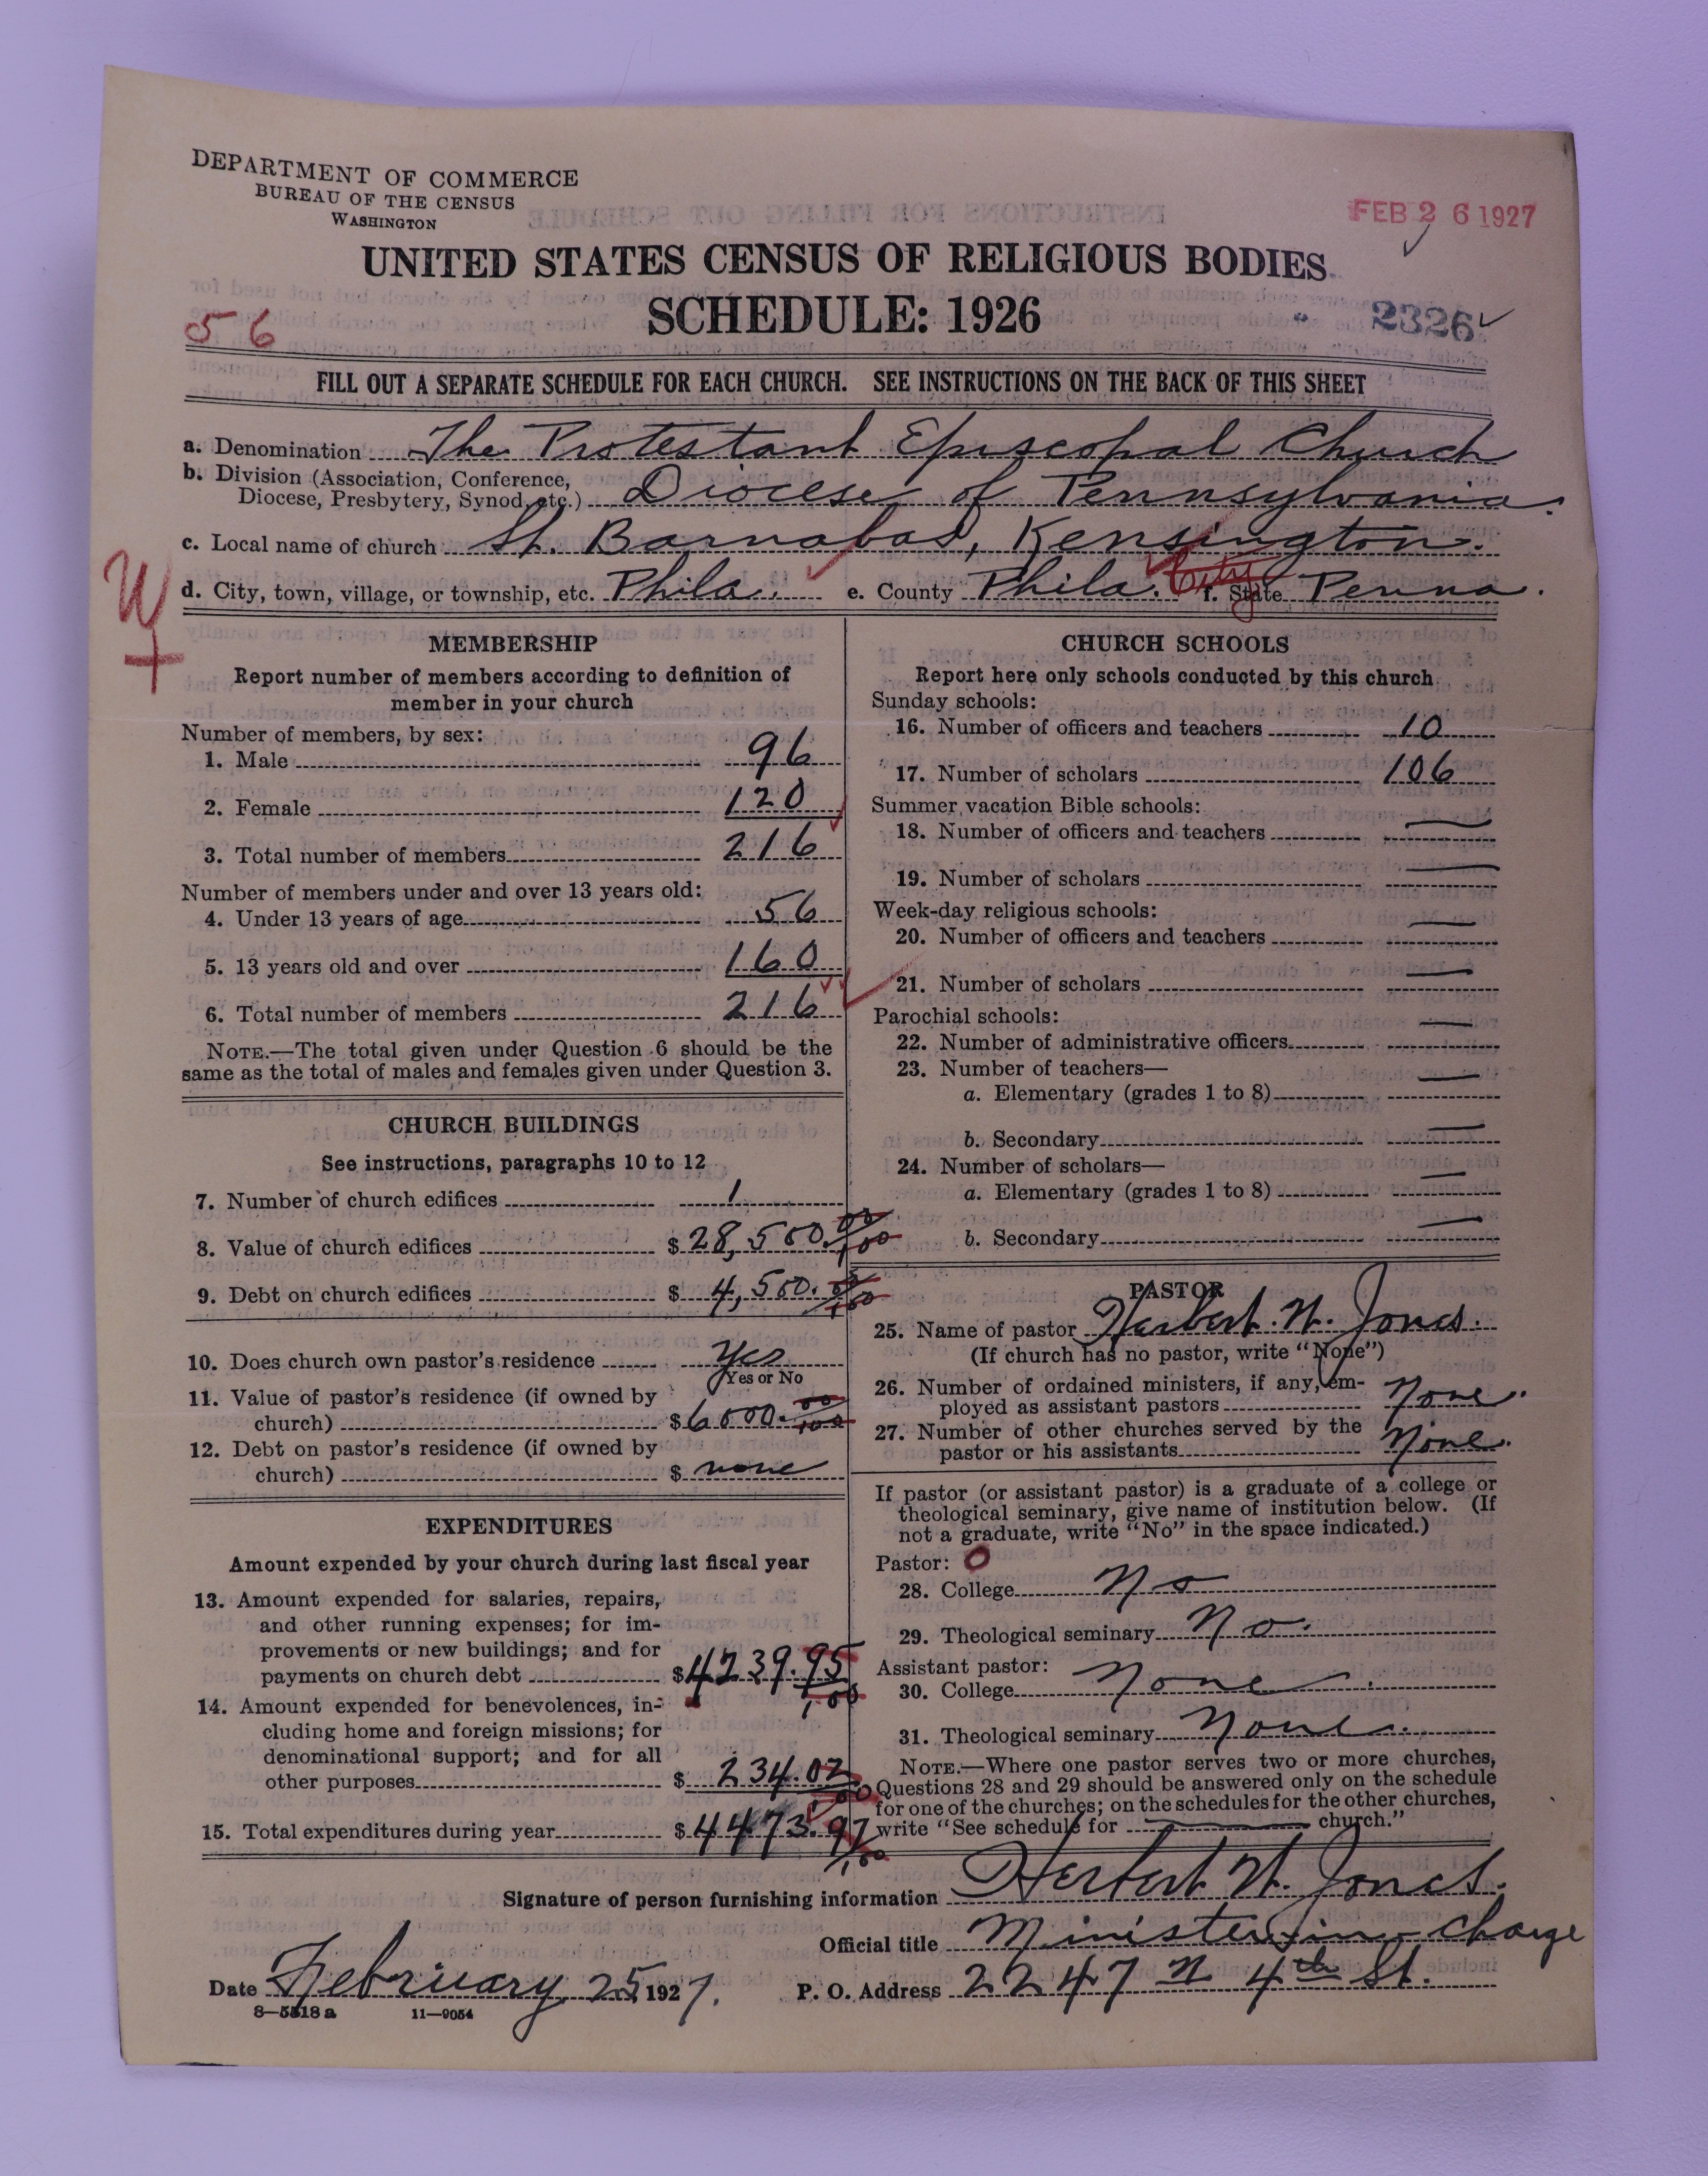 DEPARTMENT OF COMMERCE
BUREAU OF THE CENSUS
WASHINGTON
FEB 26 1927
UNITED STATES CENSUS OF RELIGIOUS BODIES
SCHEDULE: 1926
56
2326
FILL OUT A SEPARATE SCHEDULE FOR EACH CHURCH. SEE INSTRUCTIONS ON THE BACK OF THIS SHEET
a. Denomination The Protestant Episcopal Church
b. Division (Association, Conference,
Diocese, Presbytery, Synod, etc.) Diocese of Pennsylvania.
c. Local name of church St. Barnabas, Kensington.
d. City, town, village, or township, etc. Phila. e. County Phila. City f. State Penna.
MEMBERSHIP
Report number of members according to definition of
member in your church
Number of members, by sex:
1. Male 96
2. Female 120
3. Total number of members 216
Number of members under and over 13 years old:
4. Under 13 years of age 56
5. 13 years old and over 160
6. Total number of members 216
NOTE.—The total given under Question 6 should be the
same as the total of males and females given under Question 3.
CHURCH BUILDINGS
See instructions, paragraphs 10 to 12
7. Number of church edifices 1
8. Value of church edifices $28,500.00/100
9. Debt on church edifices $4,500.00/100
10. Does church own pastor's residence Yes
Yes or No
11. Value of pastor's residence (if owned by
church) $6000.00/100
12. Debt on pastor's residence (if owned by
church) $ none
EXPENDITURES
Amount expended by your church during last fiscal year
13. Amount expended for salaries, repairs,
and other running expenses; for im-
provements or new buildings; and for
payments on church debt $4239.95/100
14. Amount expended for benevolences, in-
cluding home and foreign missions; for
denominational support; and for all
other purposes $234.02/100
15. Total expenditures during year $4473.97/100
CHURCH SCHOOLS
Report here only schools conducted by this church
Sunday schools:
16. Number of officers and teachers 10
17. Number of scholars 106
Summer vacation Bible schools:
18. Number of officers and teachers —
19. Number of scholars —
Week-day religious schools:
20. Number of officers and teachers —
21. Number of scholars —
Parochial schools:
22. Number of administrative officers —
23. Number of teachers—
a. Elementary (grades 1 to 8) —
b. Secondary —
24. Number of scholars—
a. Elementary (grades 1 to 8) —
b. Secondary —
PASTOR
25. Name of pastor Herbert W. Jones.
(If church has no pastor, write "None")
26. Number of ordained ministers, if any, em-
ployed as assistant pastors None.
27. Number of other churches served by the
pastor or his assistants None.
If pastor (or assistant pastor) is a graduate of a college or
theological seminary, give name of institution below. (If
not a graduate, write "No" in the space indicated.)
Pastor: O
28. College No
29. Theological seminary No.
Assistant pastor:
30. College None.
31. Theological seminary None.
NOTE.—Where one pastor serves two or more churches,
Questions 28 and 29 should be answered only on the schedule
for one of the churches; on the schedules for the other churches,
write "See schedule for — church."
Signature of person furnishing information Herbert W. Jones.
Official title Minister in charge
Date February 25, 1927. P. O. Address 2247 N 4th St.
8—5518 a 11—9054